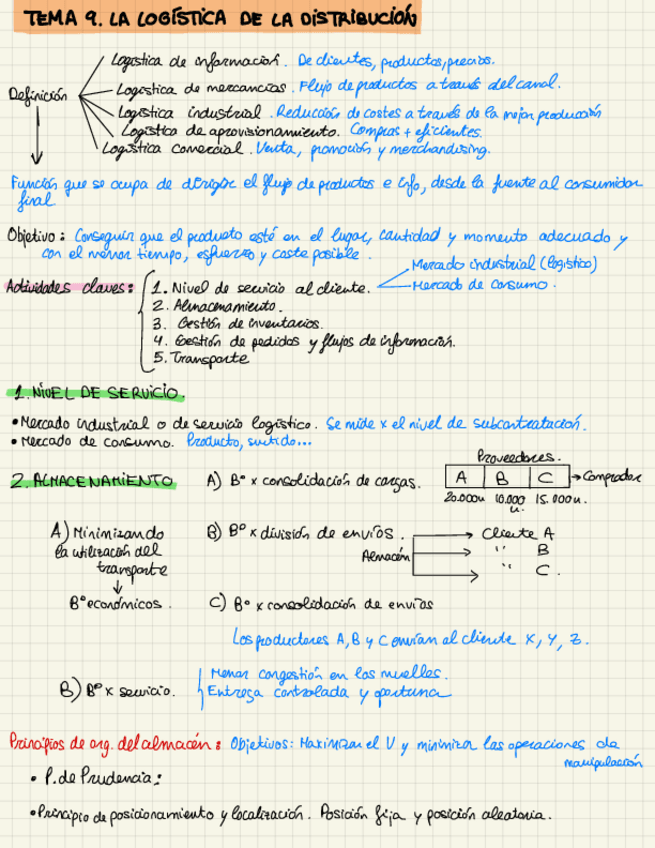 TEMA 9. LA LOGÍSTICA DE LA DISTRIBUCIÓN
Logística de información. De clientes, productos, precios.
Definición
Logística de mercancías. Flujo de productos a través del canal.
Logística industrial. Reducción de costes a través de la mejor producción
Logística de aprovisionamiento. Compras + eficientes.
Logística comercial. Venta, promoción y merchandising.
Función que se ocupa de dirigir el flujo de productos e info, desde la fuente al consumidor
final
Objetivo: Conseguir que el producto esté en el lugar, cantidad y momento adecuado y
con el menor tiempo, esfuerzo y coste posible.
Mercado industrial (logístico)
Actividades claves: 1. Nivel de servicio al cliente. Mercado de consumo.
2. Almacenamiento.
3. Gestión de inventarios.
4. Gestión de pedidos y flujos de información.
5. Transporte
1. NIVEL DE SERVICIO.
• Mercado industrial o de servicio logístico. Se mide x el nivel de subcontratación.
• Mercado de consumo. Producto, surtido...
Proveedores.
2. ALMACENAMIENTO A) Bº x consolidación de cargas. A B C → Comprador
20.000u 10.000 u. 15.000u.
A) Minimizando
la utilización del
transporte
Bº económicos.
B) Bº x división de envíos. Cliente A
Almacén " B
" C.
C) Bº x consolidación de envíos
Los productores A, B y C envían al cliente X, Y, Z.
B) Bº x servicio. Menor congestión en los muelles.
Entrega controlada y oportuna
Principios de org. del almacén: Objetivos: Maximizar el V y minimizar las operaciones de
manipulación
• P. de Prudencia:
• Principio de posicionamiento y localización. Posición fija y posición aleatoria.